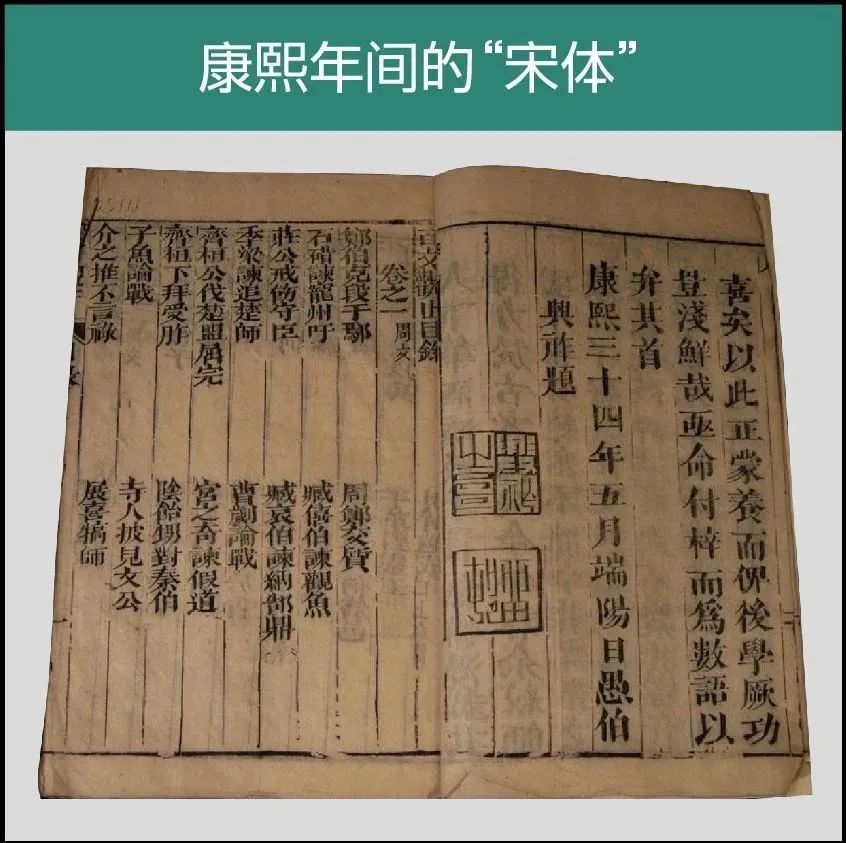 康熙年间的“宋体”
喜矣以此正蒙養而俾後學厥功
豈淺鮮哉亟命付梓而爲數語以
弁其首
康熙三十四年五月端陽日愚伯
興祚題
古文觀止目錄
卷之一 周文
鄭伯克段于鄢 周鄭交質
石碏諫寵州吁 臧僖伯諫觀魚
莊公戒飭守臣 臧哀伯諫納郜鼎
季梁諫追楚師 曹劌論戰
齊桓公伐楚盟屈完 宮之奇諫假道
齊桓下拜受胙 陰飴甥對秦伯
子魚論戰 寺人披見文公
介之推不言祿 展喜犒師